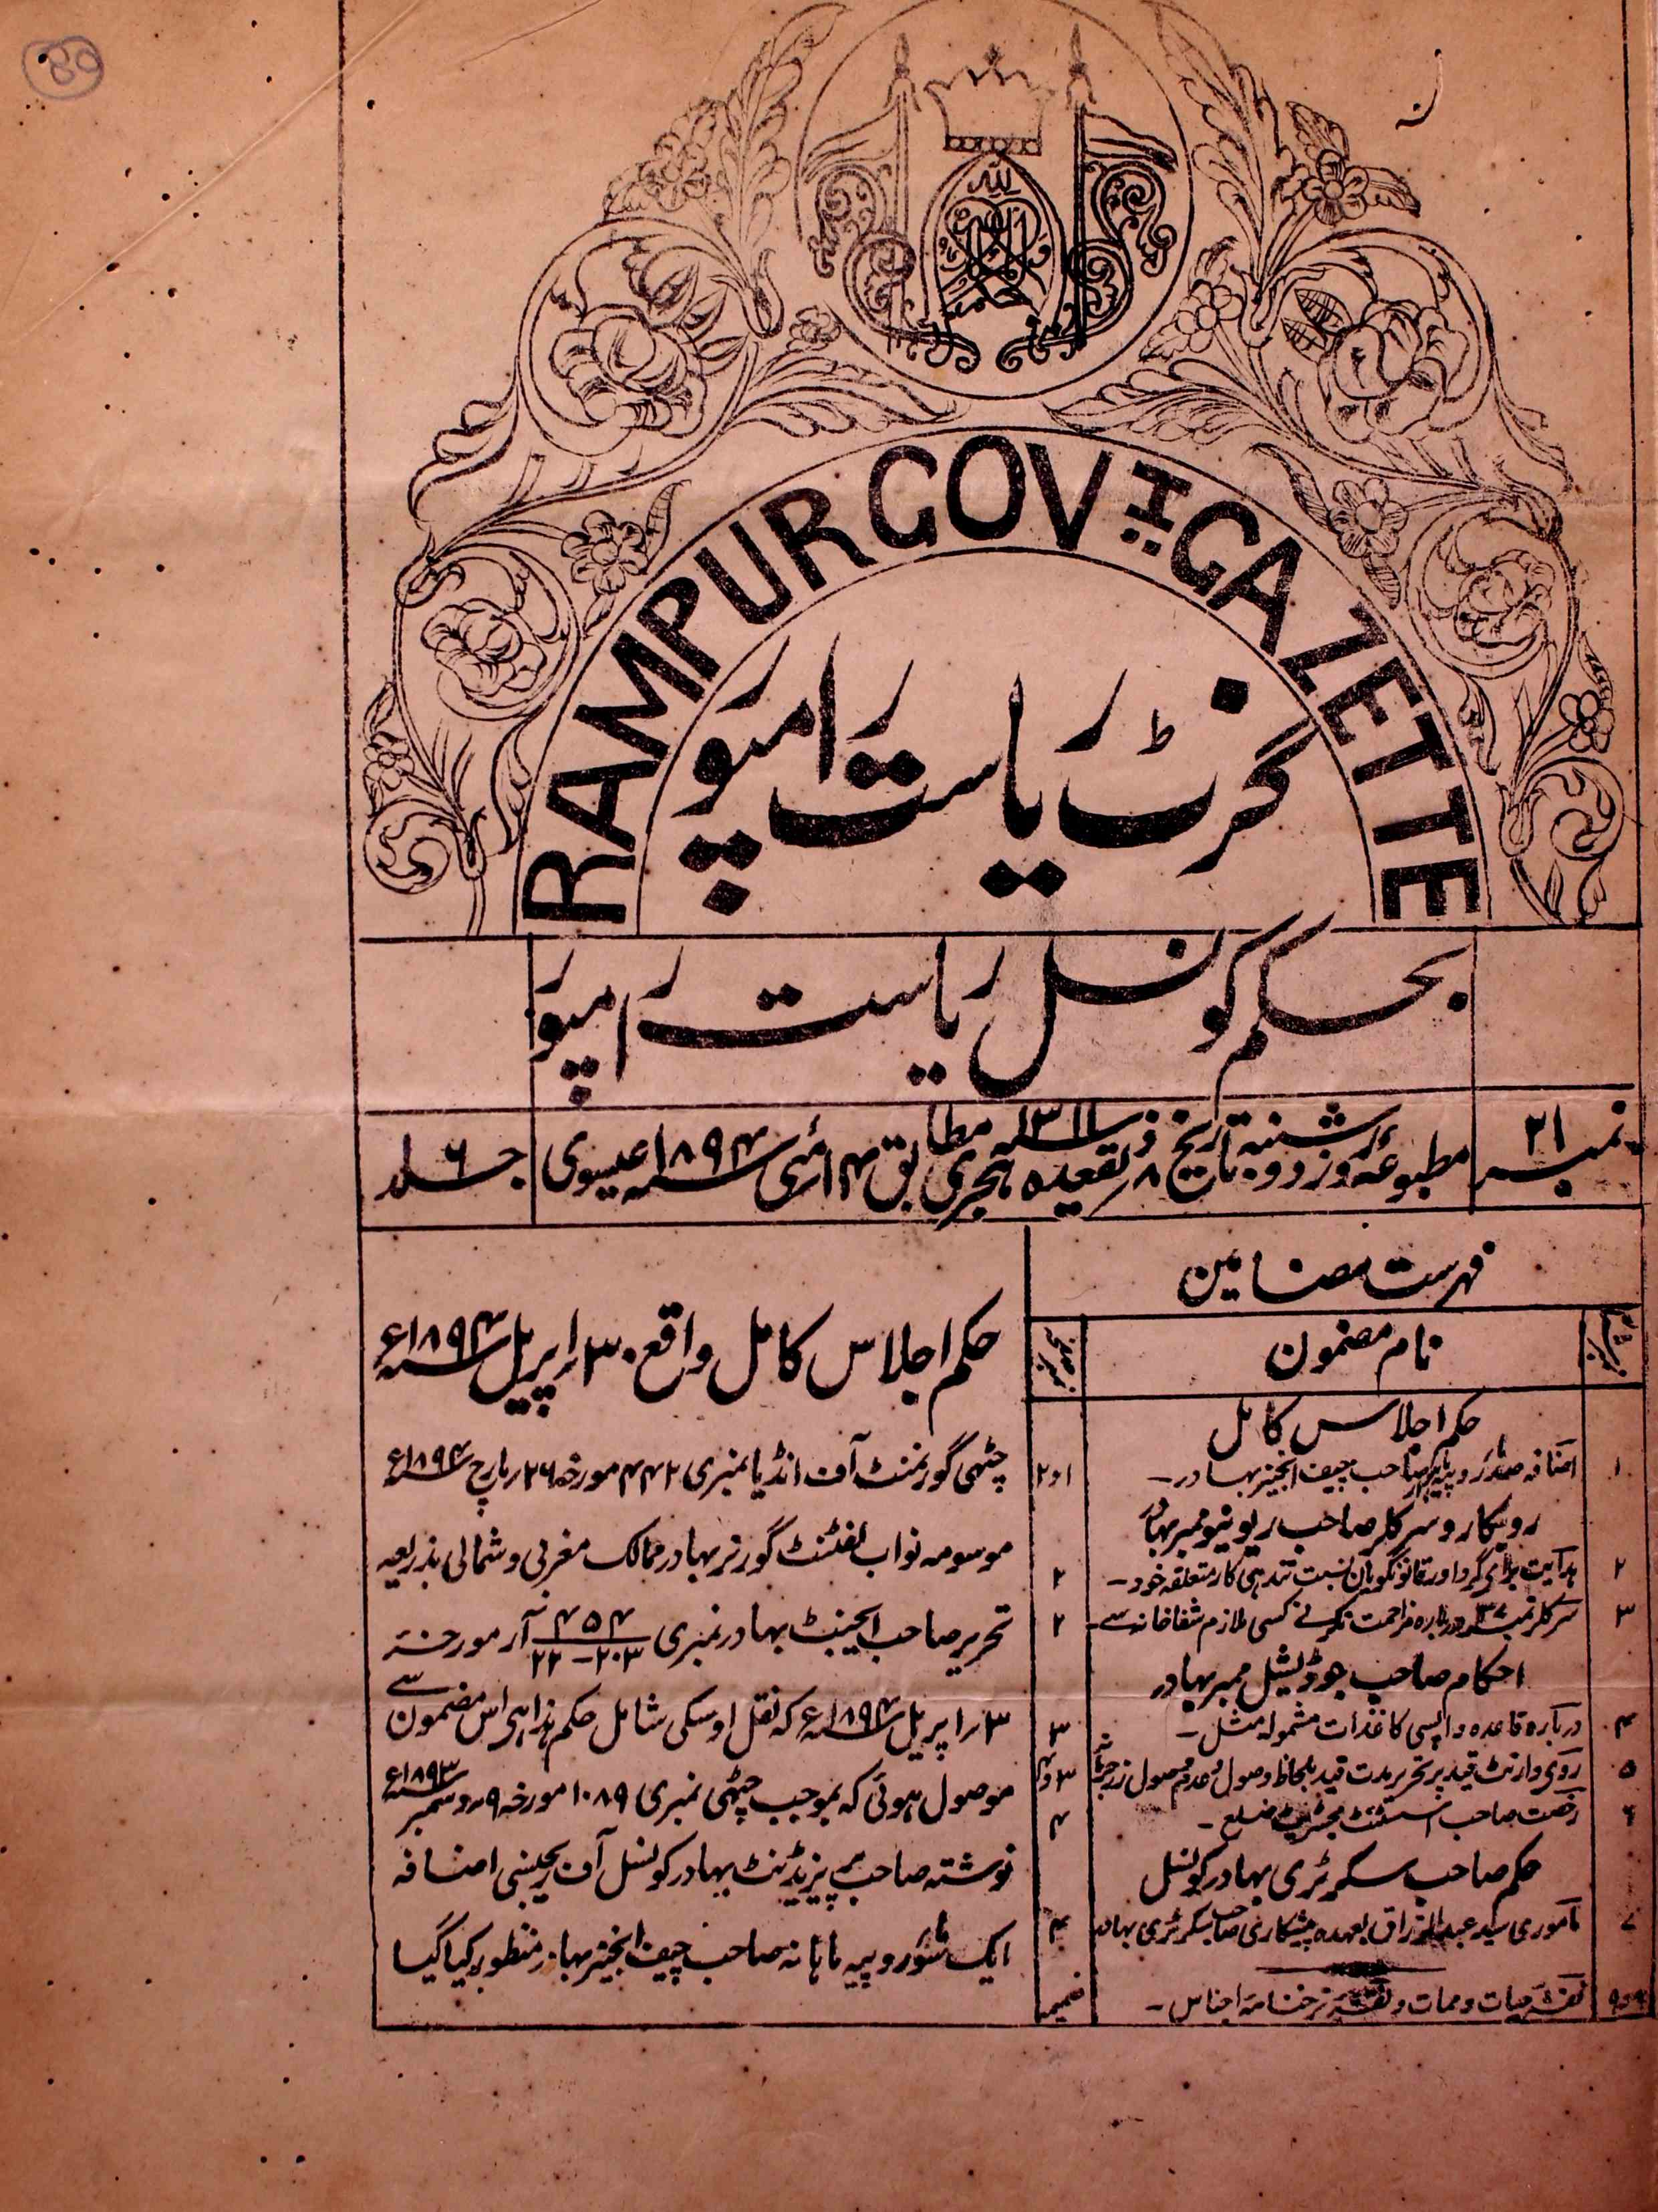 RAMPUR GOVT. GAZETTE
گزٹ ریاست رامپور
بحکم کونسل ریاست رامپور
نمبر ۲۱
مطبوعہ روز دوشنبہ تاریخ ۸ ذیقعدہ سنہ ۱۳۱۱ ہجری مطابق ۱۴ مئی سنہ ۱۸۹۴ عیسوی
جلد ۶
فہرست مضامین
نام مضمون
حکم اجلاس کامل
۱ اضافہ روپیہ صاحب چیف انجنیر بہادر - ۱و۲
روبکار و سرکلر صاحب ریونیو ممبر بہادر
۲ ہدایت برای گرداور قانونگویان نسبت تندہی کار متعلقہ خود - ۲
۳ سرکلر نمبر ۳۷ دربارہ مزاحمت نکرنے کسی ملازم شفاخانہ سے - ۲
احکام صاحب جوڈیشل ممبر بہادر
۴ دربارہ قاعدہ واپسی کاغذات مشمولہ مثل - ۳
۵ روی وارنٹ قید پر تحریر مدت قید بلحاظ وصول و عدم وصول زر جرمانہ ۳و۴
۶ رخصت صاحب اسسٹنٹ مجسٹریٹ ضلع - ۴
حکم صاحب سکرٹری بہادر کونسل
۷ ماموری سید عبدالرزاق بعہدہ پیشکاری صاحب سکرٹری بہادر ۴
۸و۹ نقشہ حیات و ممات و نقشہ نرخنامہ اجناس - ضمیمہ
حکم اجلاس کامل واقع ۳۰ اپریل سنہ ۱۸۹۴ع
چٹھی گورنمنٹ آف انڈیا نمبری ۴۴۲ مورخہ ۲۶ مارچ سنہ ۱۸۹۴ع
موسومہ نواب لفٹنٹ گورنر بہادر ممالک مغربی و شمالی بذریعہ
تحریر صاحب ایجنٹ بہادر نمبری ۴۵۴ / ۲۰۳-۲۲ آر مورخہ
۳ اپریل سنہ ۱۸۹۴ع کہ نقل اوسکی شامل حکم ہذا ہی اس مضمون سے
موصول ہوئی کہ بموجب چٹھی نمبری ۱۰۸۹ مورخہ ۹ دسمبر سنہ ۱۸۹۳ع
نوشتہ صاحب پریزیڈنٹ بہادر کونسل آف ریجنسی اضافہ
ایک سو روپیہ ماہانہ صاحب چیف انجنیر بہادر منظور کیا گیا